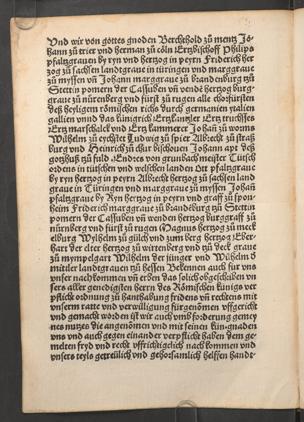 Und wir von gottes gnoden Berchthold zu mentz Jo-
hann zu trier vnd herman zu cöln Ertzbischoff Philips
pfaltzgrauen by ryn vnd hertzog in peyrn Friderich her
zog zu sachssen landtgraue in türingen vnd marggraue
zu myssen vñ Johann marggraue zu brandenburg zů
Stettin pomern der Cassuben vñ vende hertzog burg-
graue zu nürenberg vnd fürst zu rugen alle churfürsten
deß heyligen römischen richs durch germanien ytalien
gallien vnnd das künigrich Ertzkantzler Ertztruchsses
Ertzmarschalck vnd Ertzkammerer Johañ zů woms
Wilhelm zu eychstet Ludwig zů spier Albrecht zů straß
burg vnd Heinrich zů chur bischouen Johann apt deß
gotzhuß zů fuld Endres von grunbach meister Tütsch
ordens in tütschen vnd welschen landen Ott pfaltzgraue
by ryn hertzog in peyrn Albrecht hertzog zů sachssen land
graue in Türingen vnd marggraue zu myssen Johañ
pfaltzgraue by Ryn hertzog in peyrn vnd graff zů spon-
heim Friderich marggraue zů brandeburg zů Stettin
pomern der Cassuben vñ wenden hertzog burggraff zů
nürnberg vnd fürst zů rugen Magnus hertzog zů meck
elburg Wylhelm zů gülch vnd zum berg hertzog Eber
hart der elter hertzog zů wirtenberg vnd tzů deck graue
zů mympelgart Wilhelm der jünger vnd Wilhelm ð
mittler landtgrauen zů hessen Bekennen auch für vns
vnser nachkommen vñ erben das solich obgeschriben vn
sers aller genedigsten herren des Römischen künigs ver
pflicht ordnung zů hanthabung fridens vñ rechtens mit
vnserm ratte vnd verwilligung fürgenomen vffgericht
vnd gemacht worden ist wir auch vmb forderung gemey
nes nutzes die angenomen vnd mit seinen kün-gnaden
vns vnd auch gegen einander verpflicht haben dem ge-
melten fryd vnd recht vffrichtigclich nachkommen vnd
vnsers teyls getreülich vnd gehorsamlich helffen hande-